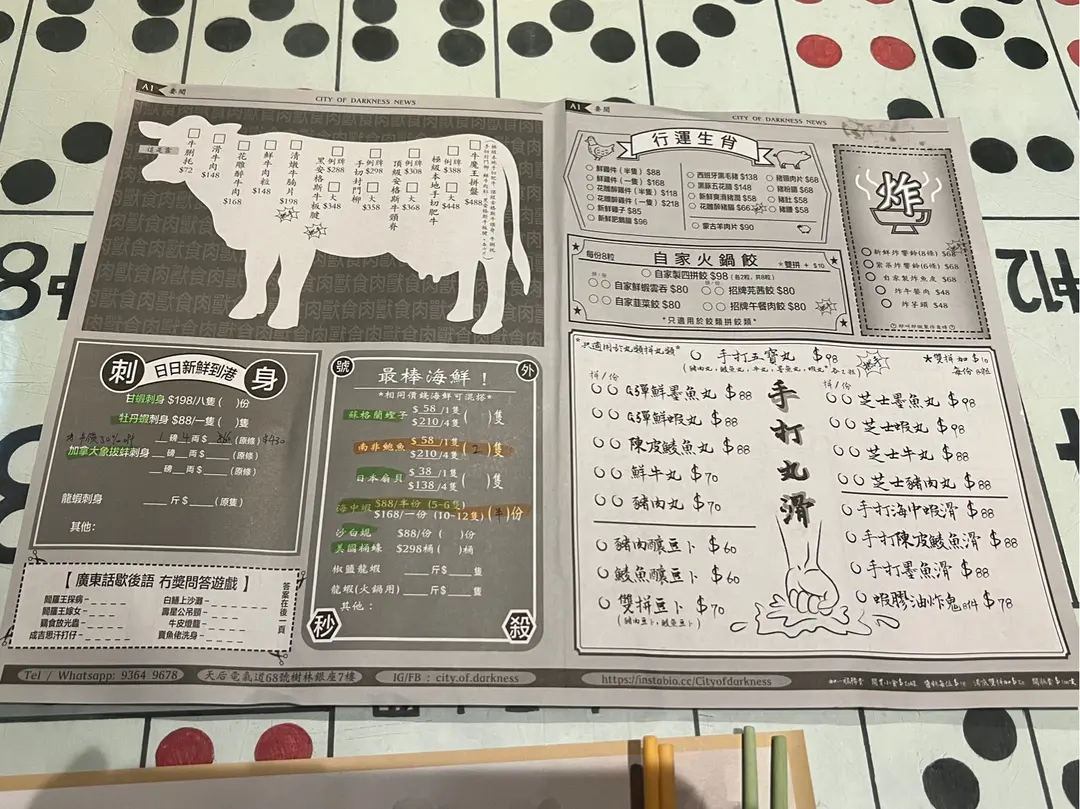 A1 要聞
CITY OF DARKNESS NEWS
牛脷托 $72
滑牛肉 $148
花雕醉牛肉 $168
鮮牛肉粒 $148
清燉牛腩片 $198
黑安格斯牛板腱 例牌 $288 大 $348
手切封門柳 例牌 $298 大 $358
頂級安格斯牛頸脊 例牌 $308 大 $368
極級本地手切肥牛 例牌 $388 大 $448
牛魔王拼盤 $488
刺身
日日新鮮到港
甘蝦刺身 $198/八隻 ( )份
牡丹蝦刺身 $88/一隻 ( )隻
1 磅 4 両 $ (原條) $430
加拿大象拔蚌刺身 磅 両 $ (原條)
磅 両 $ (原條)
龍蝦刺身 斤 $ (原隻)
其他:
【 廣東話歇後語 冇獎問答遊戲 】
閻羅王探病-
閻羅王嫁女-
鷄食放光蟲-
成吉思汗打仔-
白鱔上沙灘-
壽星公吊頸-
牛皮燈籠-
賣魚佬洗身-
答案在後一頁
號外
最棒海鮮！
*相同價錢海鮮可混搭*
蘇格蘭蟶子 $58/1隻 $210/4隻 ( )隻
南非鮑魚 $58/1隻 $210/4隻 ( 2 )隻
日本扇貝 $38/1隻 $138/4隻 ( )隻
海中蝦 $88/半份 (5-6隻) $168/一份 (10-12隻) (半)份
沙白蜆 $88/份 ( )份
美國桶蠔 $298桶 ( )桶
椒鹽龍蝦 斤$ 隻
龍蝦(火鍋用) 斤$ 隻
其他:
秒殺
Tel / Whatsapp: 9364 9678
天后電氣道68號樹林銀座7樓
IG/FB : city.of.darkness
A1 要聞
CITY OF DARKNESS NEWS
行運生肖
鮮雞件 (半隻) $88
鮮雞件 (一隻) $168
花雕醉雞件 (半隻) $118
花雕醉雞件 (一隻) $218
新鮮雞子 $85
新鮮肥鵝腸 $96
西班牙黑毛豬 $138
黑豚五花腩 $148
新鮮爽滑豬潤 $58
花雕醉豬腦 $66
蒙古羊肉片 $90
豬頸肉片 $68
豬粉腸 $68
豬肚 $58
豬腰 $58
每份8粒
自家火鍋餃
*雙拼 + $10
自家製四拼餃 $98 (各2粒, 共8粒)
自家鮮蝦雲吞 $80
招牌芫茜餃 $80
自家韮菜餃 $80
招牌午餐肉餃 $80
*只適用於餃類拼餃類*
炸
新鮮炸響鈴(8條) $68
紫菜炸響鈴(6條) $68
自家製炸魚皮 $68
炸牛蒡肉 $48
炸芋頭 $48
*只適用於丸類拼丸類*
手打五寶丸 $98
★雙拼加$10
每份8粒
手打丸滑
拼/份
G彈鮮墨魚丸 $88
G彈鮮蝦丸 $88
陳皮鯪魚丸 $88
鮮牛丸 $70
豬肉丸 $70
豬肉釀豆卜 $60
鯪魚釀豆卜 $60
雙拼豆卜 $70
(豬肉豆卜, 鯪魚豆卜)
拼/份
芝士墨魚丸 $98
芝士蝦丸 $98
芝士牛丸 $88
芝士豬肉丸 $88
手打海中蝦滑 $88
手打陳皮鯪魚滑 $88
手打墨魚滑 $88
蝦膠油炸鬼8件 $78
https://instabio.cc/Cityofdarkness